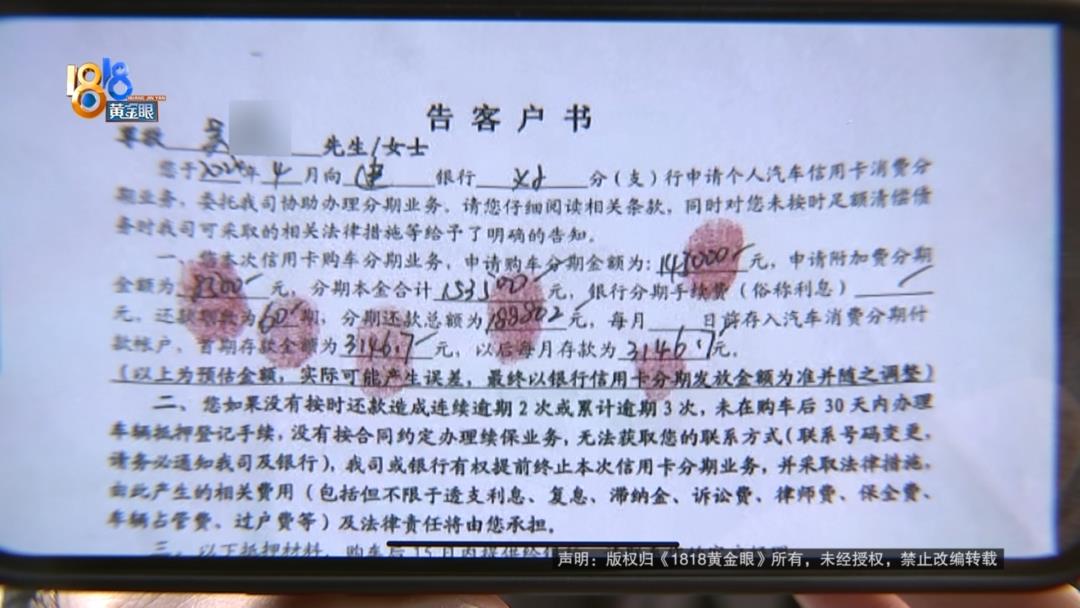 1818
HUANG JIN YAN
黄金眼
告客户书
尊敬 吴 先生/女士
您于2024年4月向建银行 分(支)行申请个人汽车信用卡消费分
期业务,委托我司协助办理分期业务。请您仔细阅读相关条款,同时对您未按时足额清偿债
务时我司可采取的相关法律措施等给予了明确的告知。
一、您本次信用卡购车分期业务,申请购车分期金额为:145000元,申请附加费分期
金额为8300元,分期本金合计153300元,银行分期手续费(俗称利息)
元,还款期数为60期,分期还款总额为188802元,每月 日前存入汽车消费分期付
款帐户,首期存款金额为3146.7元,以后每月存款为3146.7元。
(以上为预估金额,实际可能产生误差,最终以银行信用卡分期发放金额为准并随之调整)
二、您如果没有按时还款造成连续逾期2次或累计逾期3次,未在购车后30天内办理
车辆抵押登记手续,没有按合同约定办理续保业务,无法获取您的联系方式(联系号码变更,
请务必通知我司及银行),我司或银行有权提前终止本次信用卡分期业务,并采取法律措施,
由此产生的相关费用(包括但不限于透支利息、复息、滞纳金、诉讼费、律师费、保全费、
车辆占管费、过户费等)及法律责任将由您承担。
三、以下抵押材料,购车后15日内提供给
声明:版权归《1818黄金眼》所有,未经授权,禁止改编转载